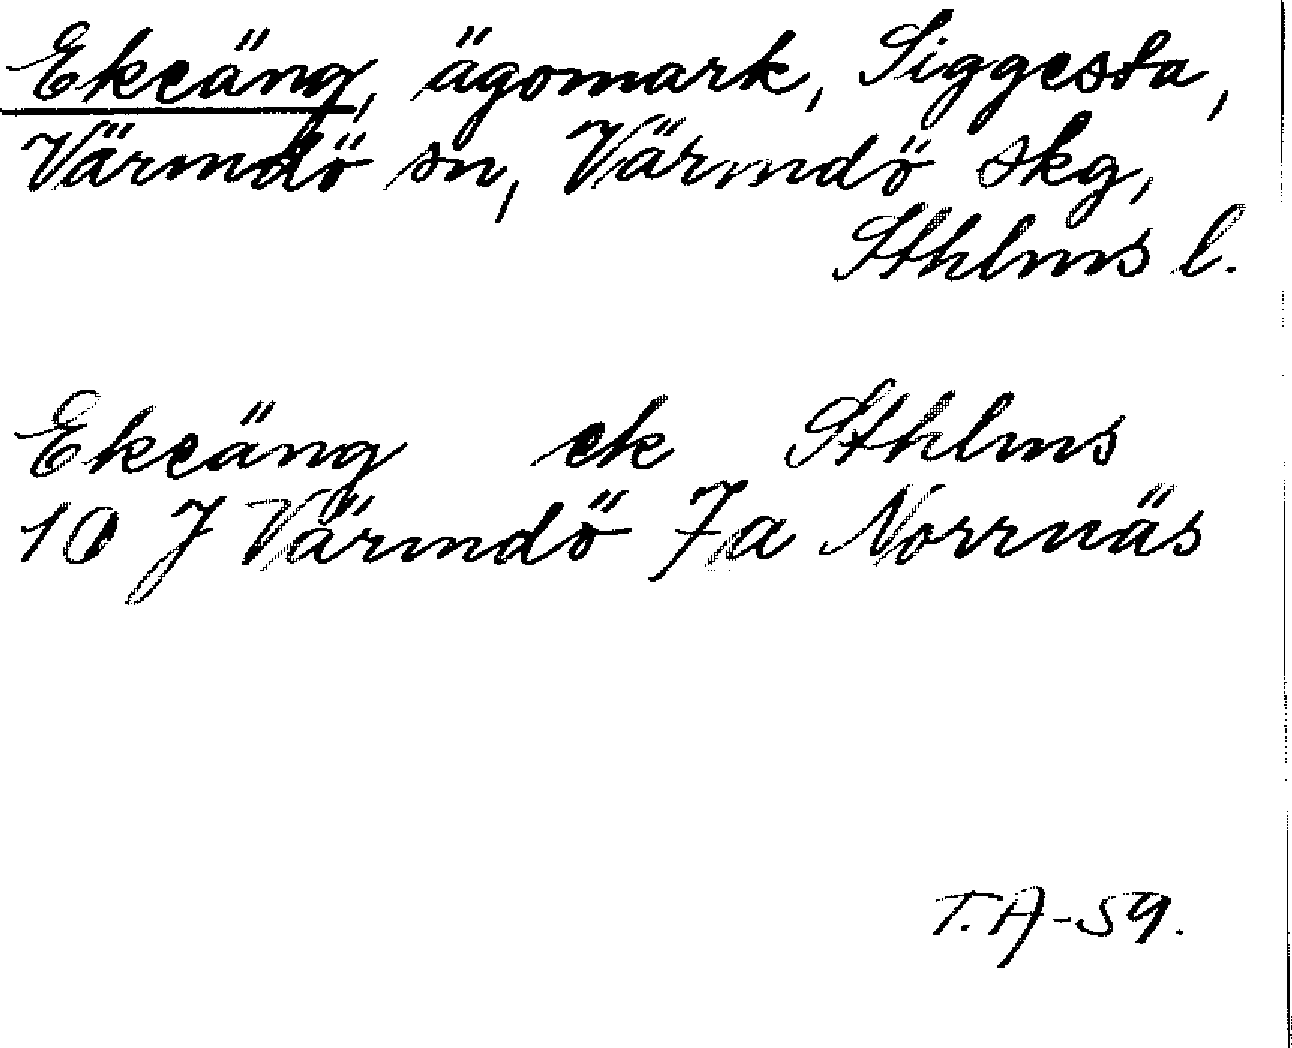 Ekeäng, ägomark, Siggesta,
Värmdö sn, Värmdö skg,
Sthlms l.
Ekeäng ek Sthlms
10 J Värmdö 7a Norrnäs
T.A-59.